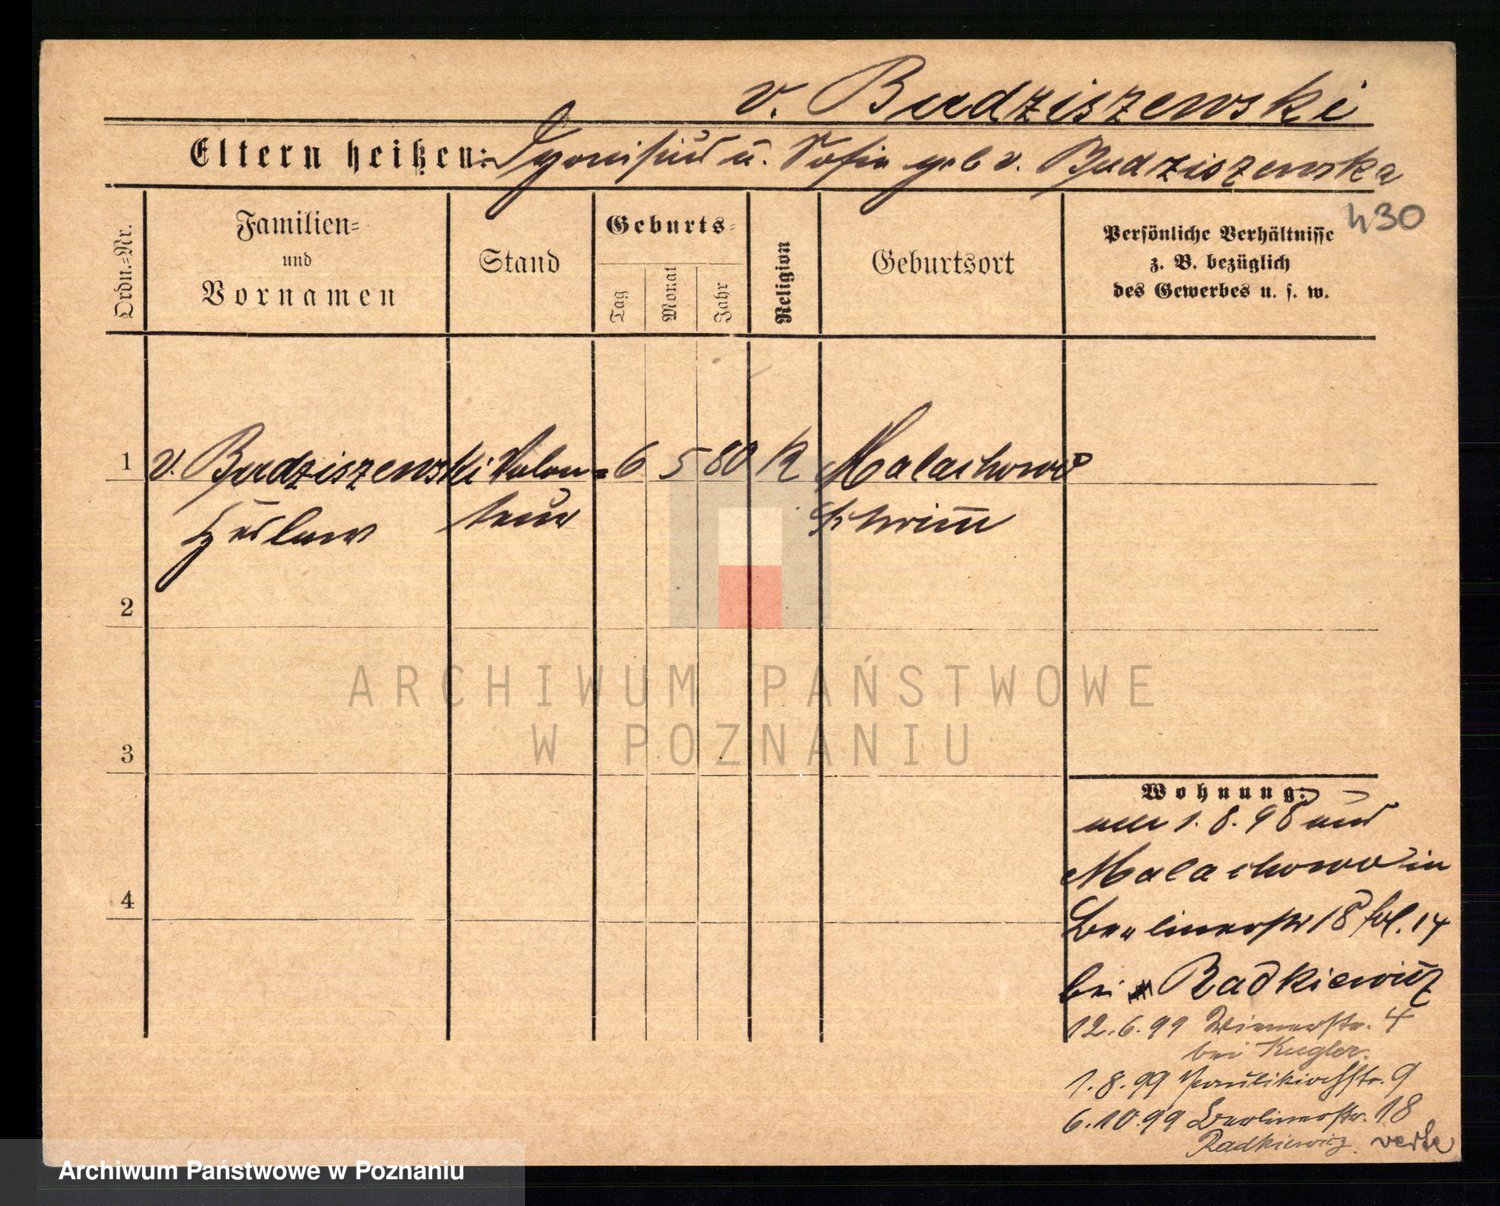 v. Budziszewski
Eltern heißen: Dyonisius u. Sofie geb v. Budziszewska
430
Ordn.=Nr.
Familien=
und
Vornamen
Stand
Geburts=
Tag
Monat
Jahr
Religion
Geburtsort
Persönliche Verhältnisse
z. B. bezüglich
des Gewerbes u. s. w.
1 v. Budziszewski Volon= 6 5 80 K Malachowo
teur Schrimm
2
3
4
ARCHIWUM PAŃSTWOWE
W POZNANIU
Wohnung:
1.8.98 aus
Malachowo in
Berlinerstr 18 fol. 14
bei Radkiewicz
12.6.99 Wienerstr. 4
bei Kugler.
1.8.99 Paulikirchstr. 9
6.10.99 Berlinerstr. 18
Radkiewicz. verte
Archiwum Państwowe w Poznaniu